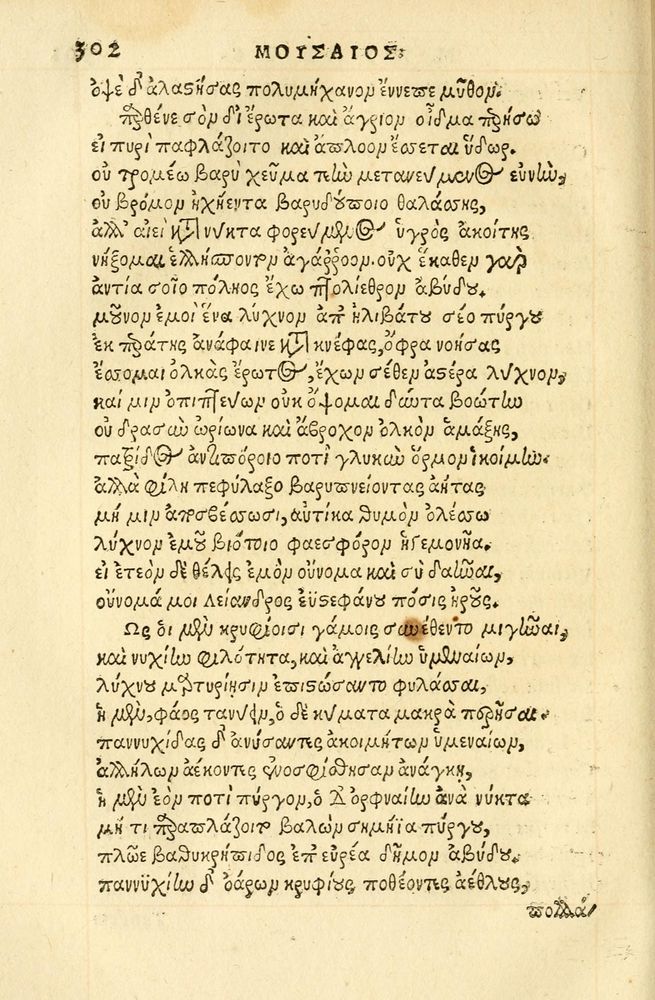 302 ΜΟΥΣΑΙΟΣ.
ὀψὲ δ' ἀλαστήσας πολυμήχανον ἔννεπε μῦθον.
παρθένε σὸν δι' ἔρωτα καὶ ἄγριον οἶδμα περήσω
εἰ πυρὶ παφλάζοιτο καὶ ἄπλοον ἔσσεται ὕδωρ.
οὐ τρομέω βαρὺ χεῦμα τεὴν μετανεύμενος εὐνὴν,
οὐ βρόμον ἠχήεντα βαρυδούποιο θαλάσσης,
ἀλλ' αἰεὶ κατὰ νύκτα φορεύμενος ὑγρὸς ἀκοίτης
νήξομαι ἑλλήσποντον ἀγάρροον. οὐχ ἕκαθεν γὰρ
ἀντία σοῖο πόληος ἔχω πτολίεθρον ἀβύδου.
μοῦνον ἐμοὶ ἕνα λύχνον ἀπ' ἠλιβάτου σέο πύργου
ἐκ περάτης ἀνάφαινε κατὰ κνέφας, ὄφρα νοήσας
ἔσσομαι ὁλκὰς ἔρωτος, ἔχων σέθεν ἀστέρα λύχνον,
καί μιν ὀπιπτεύων οὐκ ὄψομαι δύοντα βοώτην
οὐ θρασὺν ὠρίωνα καὶ ἄβροχον ὁλκὸν ἁμάξης,
πατρίδος ἀντιπόροιο ποτὶ γλυκὺν ὅρμον ἱκοίμην.
ἀλλὰ φίλη πεφύλαξο βαρυπνείοντας ἀήτας
μή μιν ἀποσβέσσωσι, αὐτίκα θυμὸν ὀλέσσω
λύχνον ἐμοῦ βιότοιο φαεσφόρον ἡγεμονῆα.
εἰ ἐτεὸν δὲ θέλῃς ἐμὸν οὔνομα καὶ σὺ δαῆναι,
οὔνομά μοι Λείανδρος ἐϋστεφάνου πόσις ἡροῦς.
Ὣς οἱ μὲν κρυφίοισι γάμοις συνέθεντο μιγῆναι,
καὶ νυχίην φιλότητα, καὶ ἀγγελίην ὑμεναίων,
λύχνου μαρτυρίῃσιν ἐπιστώσαντο φυλάσσαι,
ἡ μὲν, φάος τανύειν, ὁ δὲ κύματα μακρὰ περῆσαι.
παννυχίδας δ' ἀνύσαντες ἀκοιμήτων ὑμεναίων,
ἀλλήλων ἀέκοντες ἐνοσφίσθησαν ἀνάγκῃ,
ἡ μὲν ἑὸν ποτὶ πύργον, ὁ δ' ὀρφναίην ἀνὰ νύκτα
μή τι παραπλάζοιτο βαλὼν σημήϊα πύργου,
πλῶε βαθυκρήπιδος ἐπ' εὐρέα δῆμον ἀβύδου.
παννυχίων δ' ὀάρων κρυφίους ποθέοντες ἀέθλους,
πολλά